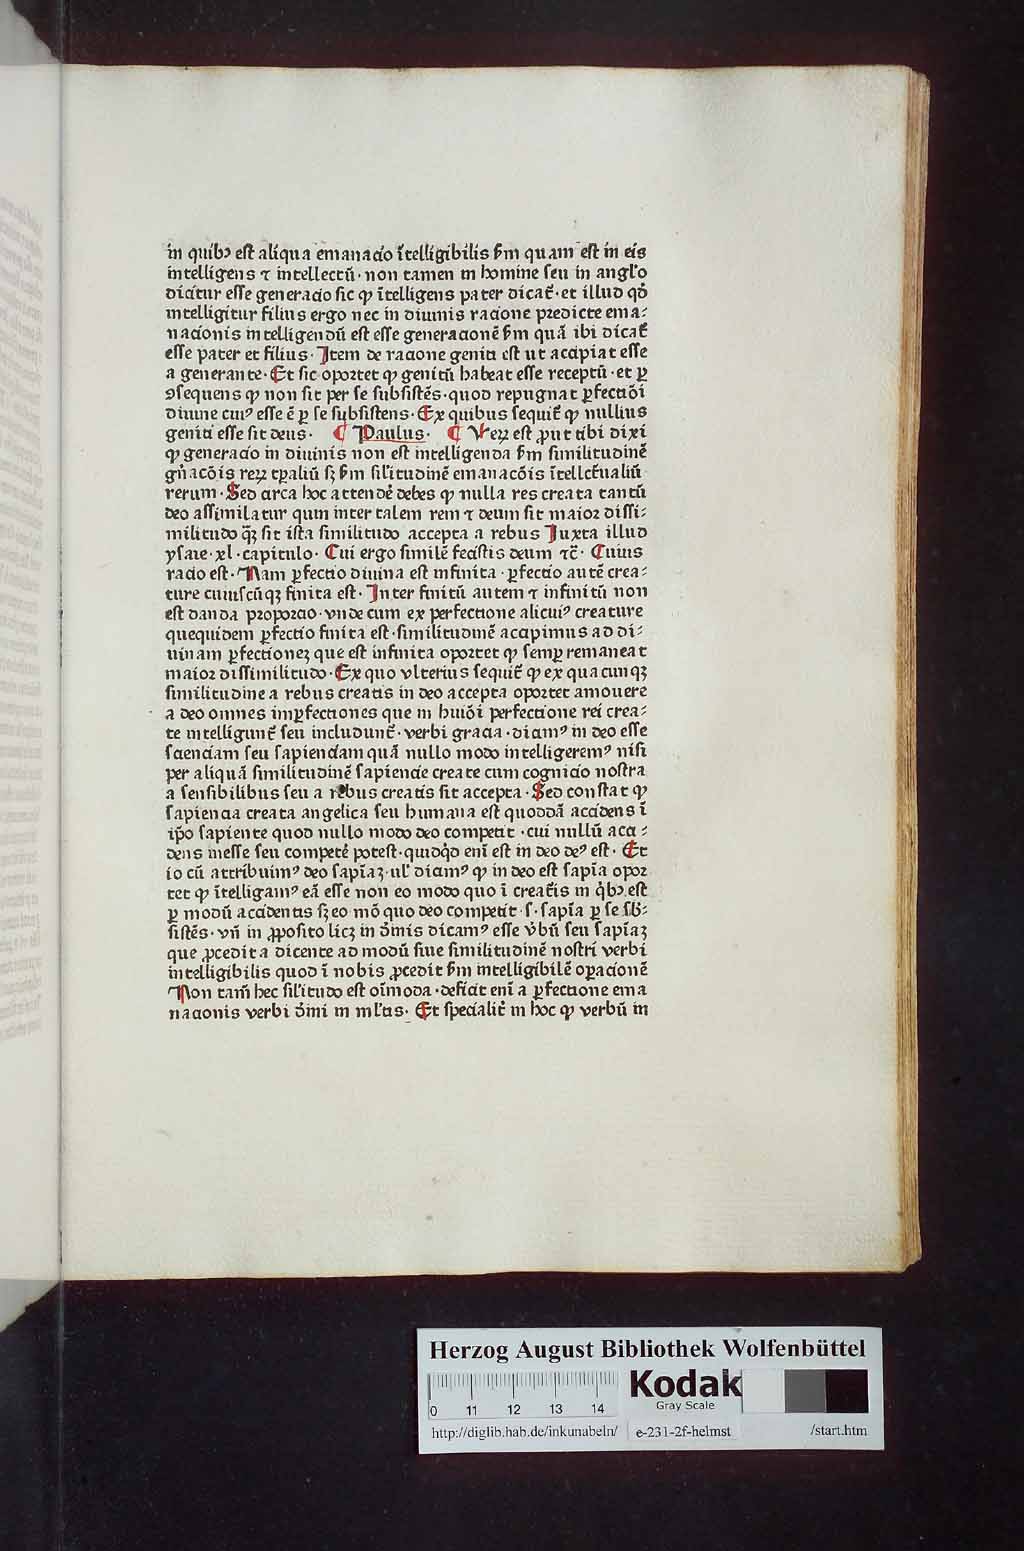 in quibꝫ est aliqua emanacio ītelligibilis ẜm quam est in eis
intelligens ⁊ intellectū · non tamen in homine seu in angl'o
dicitur esse generacio sic ꝙ ītelligens pater dicat᷑ · et illud qḋ
intelligitur filius ergo nec in diuinis racione predicte ema⸗
nacionis intelligendū est esse generacionē ẜm quā ibi dicat᷑
esse pater et filius · Item de racione geniti est ut accipiat esse
a generante · Et sic oportet ꝙ genitū habeat esse receptū · et ꝑ
ꝯsequens ꝙ non sit per se subsistēs · quod repugnat ꝑfectiōi
diuine cuiꝰ esse ē ꝑ se subsistens · Ex quibus sequit᷑ ꝙ nullius
geniti esse sit deus · ¶ Paulus · ¶ Veꝝ est ꝓut tibi dixi
ꝙ generacio in diuinis non est intelligenda ẜm similitudinē
gn̄acōis reꝝ tꝑaliū sꝫ ẜm sil'itudinē emanacōis ītellc̄tualiū
rerum · Sed circa hoc attendē debes ꝙ nulla res creata tantū
deo assimilatur qum inter talem rem ⁊ deum sit maior dissi⸗
militudo q̄ꝫ sit ista similitudo accepta a rebus Iuxta illud
ysaie · xl · capitulo · Cui ergo similē fecistis deum ⁊c̄ · Cuius
racio est · Nam ꝑfectio diuina est infinita · ꝑfectio autē crea⸗
ture cuiuscūqꝫ finita est · Inter finitū autem ⁊ infinitū non
est danda proporcio · vnde cum ex perfectione alicuiꝰ creature
quequidem ꝑfectio finita est · similitudinē accipimus ad di⸗
uinam ꝑfectioneꝫ que est infinita oportet ꝙ semꝑ remaneat
maior dissimilitudo · Ex quo vlterius sequit᷑ ꝙ ex quacunqꝫ
similitudine a rebus creatis in deo accepta oportet amouere
a deo omnes imꝑfectiones que in huiōi perfectione rei crea⸗
te intelligunt᷑ seu includunt᷑ · verbi gracia · diciamꝰ in deo esse
scienciam seu sapienciam quā nullo modo intelligeremꝰ nisi
per aliquā similitudinē sapiencie create cum cognicio nostra
a sensibilibus seu a rebus creatis sit accepta · Sed constat ꝙ
sapiencia creata angelica seu humana est quoddā accidens ī
ip̄o sapiente quod nullo modo deo competit · cui nullū acci⸗
dens inesse seu competē potest · quidqͥd enī est in deo deꝰ est · Et
io cū attribuimꝰ deo sapīaꝫ · ul' diciamꝰ ꝙ in deo est sapīa opor
tet ꝙ ītelligamꝰ eā esse non eo modo quo ī creat̄is in qͥbꝫ est
ꝑ modū accidentis sꝫ eo mō quo deo competit · s · sapīa ꝑ se sb̄⸗
sistēs · vn̄ in ꝓposito licꝫ in dīnis dicamꝰ esse v̄bū seu sapīaꝫ
que ꝓcedit a dicente ad modū siue similitudinē nostri verbi
intelligibilis quod ī nobis ꝓcedit ẜm intelligibilē oꝑacionē
Non tam̄ hec sil'itudo est oīmoda · deficit enī a ꝑfectione ema
nacionis verbi dīni in ml'tis · Et specialit᷑ in hoc ꝙ verbū in
Herzog August Bibliothek Wolfenbüttel
0 11 12 13 14
Kodak
Gray Scale
http://diglib.hab.de/inkunabeln/ e-231-2f-helmst /start.htm